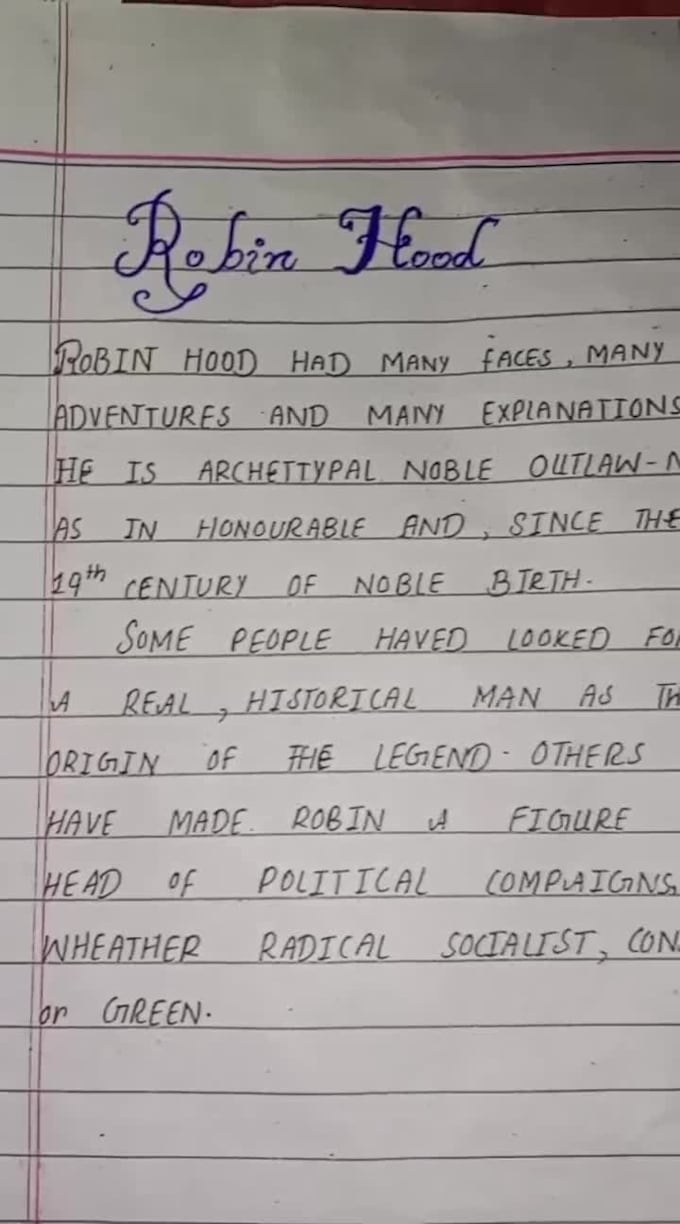 Robin Hood
ROBIN HOOD HAD MANY FACES, MANY
ADVENTURES AND MANY EXPLANATIONS
HE IS ARCHETTYPAL NOBLE OUTLAW-
AS IN HONOURABLE AND, SINCE THE
19th CENTURY OF NOBLE BIRTH.
SOME PEOPLE HAVED LOOKED
A REAL, HISTORICAL MAN AS
ORIGIN OF THE LEGEND. OTHERS
HAVE MADE. ROBIN A FIGURE
HEAD OF POLITICAL COMPAIGNS
WHEATHER RADICAL SOCIALIST,
or GREEN.